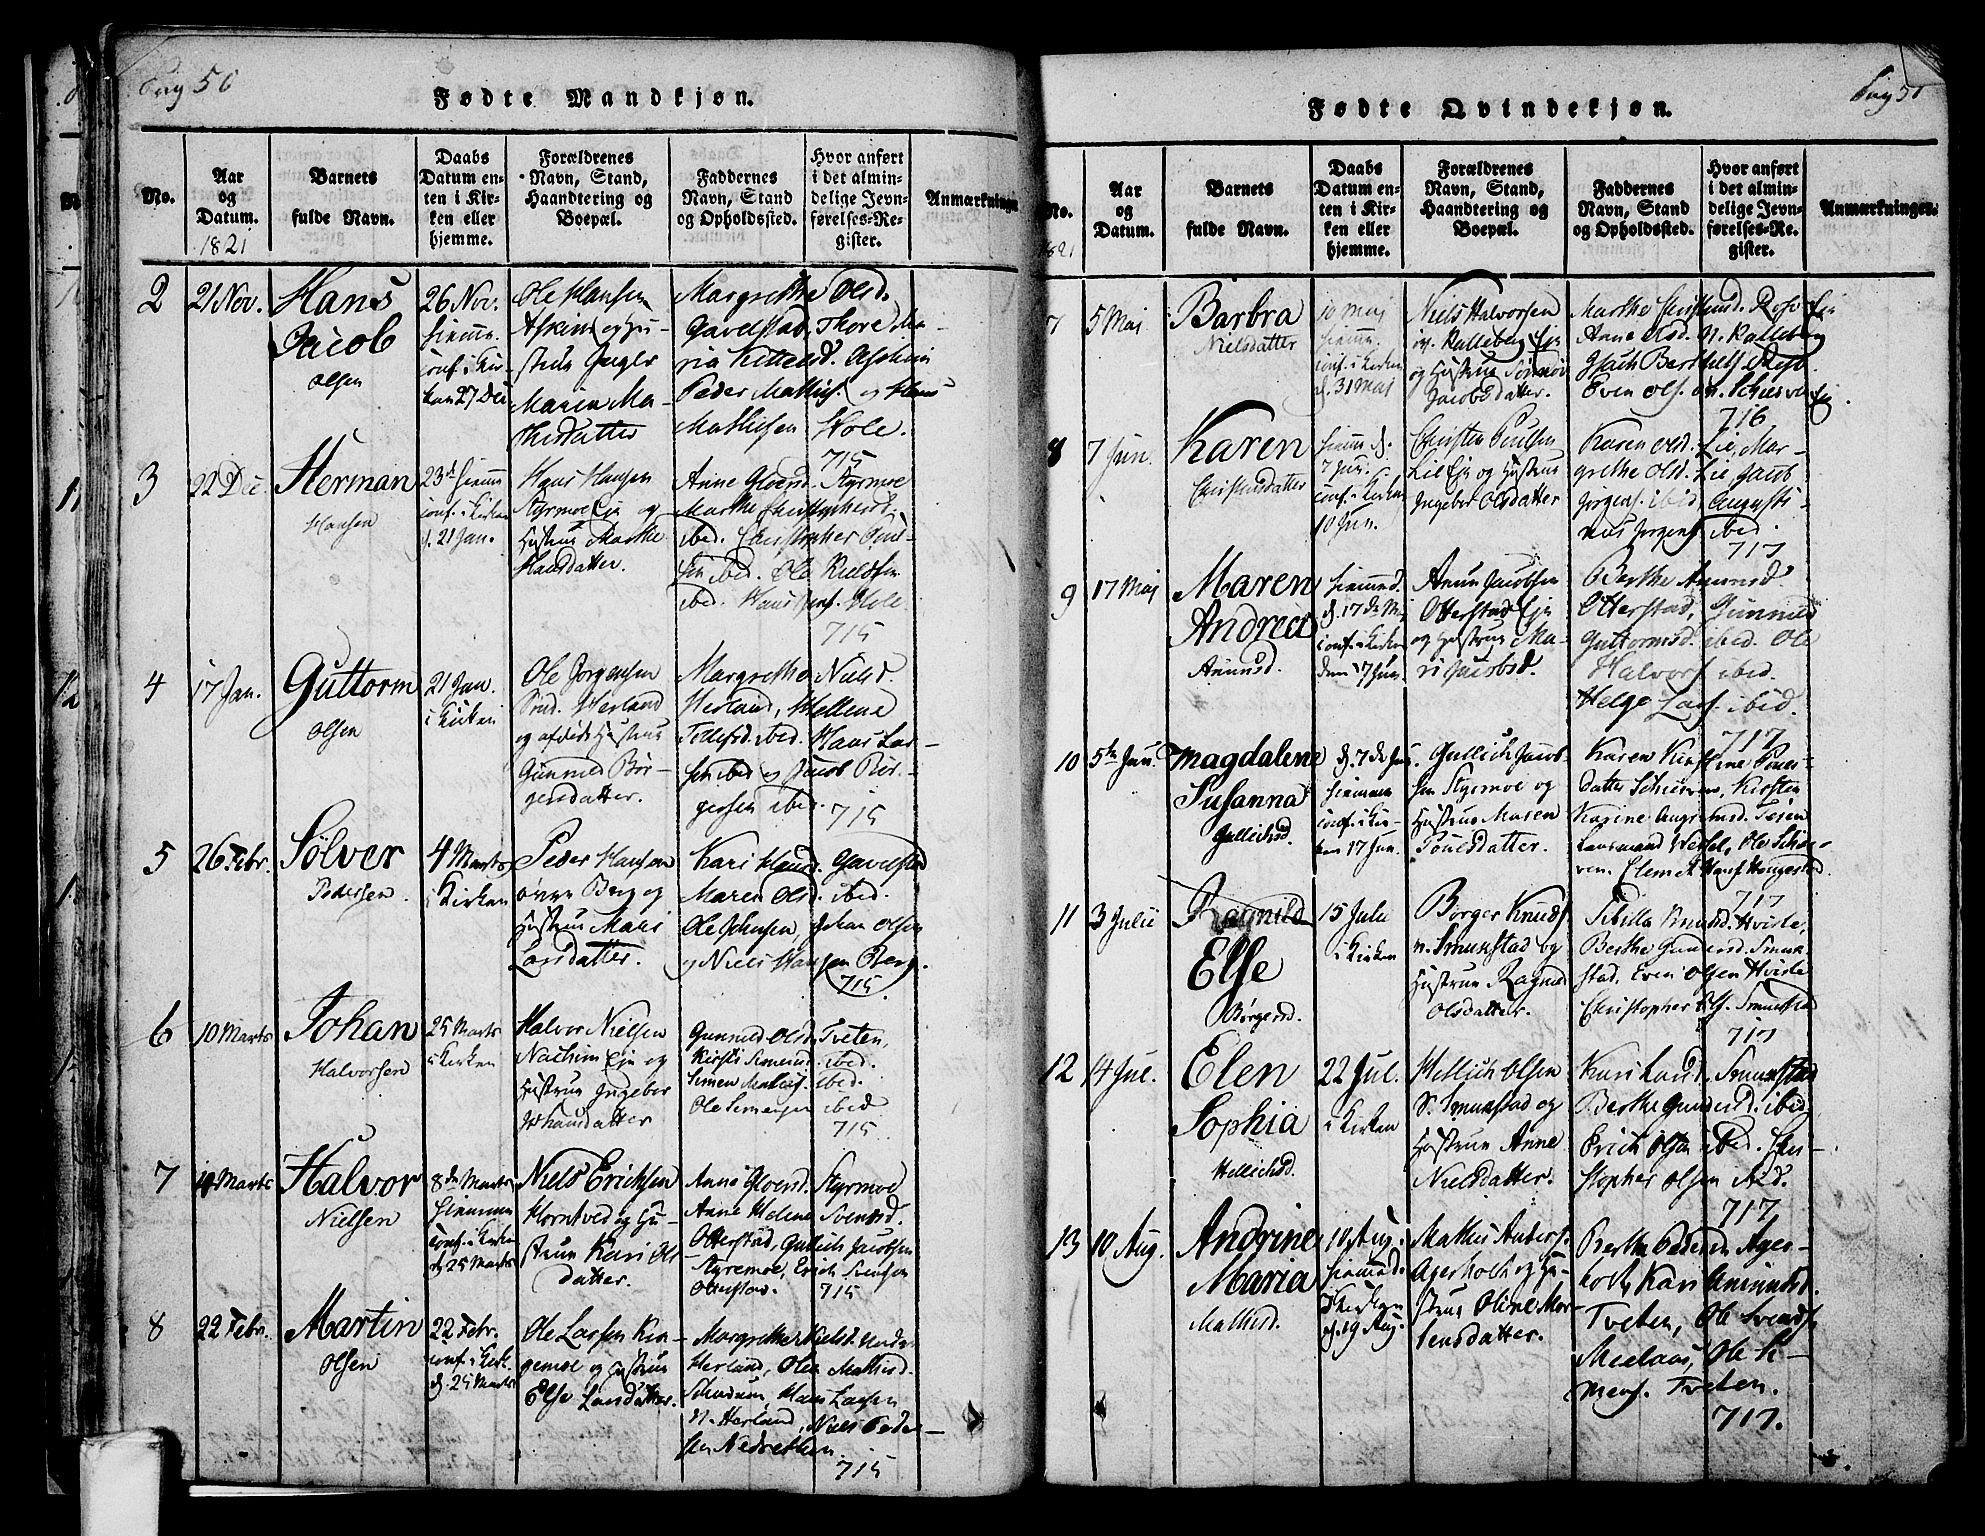 Pag 50
Fødte Mandkjøn.
No.
Aar
og
Datum.
1821
Barnets
fulde Navn.
Daabs
Datum en-
ten i Kir-
ken eller
hjemme.
Forældrenes
Navn, Stand,
Haandtering og
Boepæl.
Faddernes
Navn, Stand
og Opholdssted.
Hvor anført
i det almin-
delige Jevn-
førelses-Re-
gister.
Anmærkninger
2
21 Nov.
Hans
Jacob
Olsen
26 Nov.
hiemm.
conf. i Kir-
ken 27 Dec
Ole Hansen
og Hu-
strue
Maren Ma-
thisdatter
Margrethe Olsd.
Gavelstad, Thore Ma-
ria
Peder Mathis. og Hans
Mathisen Hole.
715
3
22 Dec.
Herman
Hansen
23d hiemm
conf. i Kirken
d. 21 Jan.
Hans Hansen
Styrmoe Eje og
Hustrue Marthe
Hansdatter.
Anne Gloersd. Styrmoe
Marthe Christophersd.
ibed. Christopher Poul-
sen ibed. Ole Nielsen
ibed. Hans Hole
715
4
17 Jan.
Guttorm
Olsen
21 Jan.
i Kirken
Ole Jorgensen
Herland
og afdøde Hustrue
Gunnild Bør-
gersdatter.
Margrethe Nielsd.
Herland, Hellene
Tollefsd. ibed. Hans Lar-
sen ibed og Jacob Bør-
gersen ibed.
715
5
26 Febr.
Sølver
Pedersen
4 Marts
i Kirken
Peder Hansen
øvre Berg og
Hustrue Mari
Larsdatter.
Kari Hansd. Gavelstad
Maren Olsd. ibed.
Ole Johnsen, Johan Olsen
og Niels Hansen Berg.
715
6
10 Marts
Johan
Halvorsen
25 Marts
i Kirken
Halvor Nielsen
Eje og
Hustrue Ingebor
Johansdatter
Gunnild Olsd. Tveten,
Kirsti Simensd. ibed.
Simen Mathis. ibed.
Ole Simensen ibed
715
7
Marts
Halvor
Nielsen
8de Marts
hiemmen
conf. i Kirken
d. 25 Marts
Niels Ericksen
Horntved og Hu-
strue Kari Ols
datter.
Anne Gloersd. Styrmoe
Anne Helene Svensd.
Otterstad, Gullich Jacobsen
Styremoe, Erich Svensen
Otterstad.
715
8
22 Febr.
Martin
Olsen
22 Febr.
conf. i Kirk.
d. 25 Marts
Ole Larsen Rin-
gemoe og Hustrue
Else Larsdatter.
Margrethe Nielsd. Neder
Herland, Olea Mathisd.
Hans Larsen
N. Herland, Niels Peder-
sen
715
Pag 51
Fødte Qvindekjøn.
No.
1821
Aar
og
Datum.
Barnets
fulde Navn.
Daabs
Datum en-
ten i Kir-
ken eller
hjemme.
Forældrenes
Navn, Stand,
Haandtering og
Boepæl.
Faddernes
Navn, Stand
og Opholdssted.
Hvor anført
i det almin-
delige Jevn-
førelses-Re-
gister.
Anmærkninger.
7
5 Maj
Barbra
Nielsdatter
10 Maj
hiemm.
conf. i Kirken
d. 31 Maj
Niels Halvorsen
øv. Kalleberg Eje
og Hustrue
Jacobsdatter.
Marthe
Anne Olsd. N. Kalleberg
Even Ols.
716
8
7 Jun.
Karen
Christensdatter
hiemm d.
7 Jun.
conf. i Kirken
10 Jun.
Christen Poulsen
Lie Eje og Hustrue
Ingebor Olsdatter
Karen Olsd. Lie, Mar-
grethe Olsd. Lie, Jacob
Jorgens. ibid, Augusti-
nus Jorgens. ibid
717
9
17 Maj
Maren
Andrea
Amunsd.
hiemmd.
d. 17de Maj
conf. i Kirken
den 17 Jun.
Amun Jacobsen
Otterstad Eje
og Hustrue Ma-
ri Jacobsd.
Berthe Amunsd
Otterstad, Gunnild
Guttormsd. ibed. Ole
Halvors. ibed.
Helge Lars. ibid.
717
10
5te Jun.
Magdalene
Susanna
Gullichsd.
d. 7de Jun.
hiemmen
conf. i Kir-
ken 17 Jun.
Gullich Jacob-
sen Styrmoe og
Hustrue Maren
Povelsdatter.
Karen Kirstine Povels-
datter Schierven, Kirsten
Karine
Wessel, Ole Schier-
ven. Hans Haugestad.
717
11
3 Julii
Ragnild
Else
Børgersd.
15 Julii
i Kirken
Borger Knuds.
n. Smukstad og
Hustrue Ragnild
Olsdatter.
Sibilla Knudsd. Hvisle,
Berthe Gundersd. Smuk-
stad, Even Olsen Hvisle
Christopher Ols. Smukstad
717
12
14 Jul.
Elen
Sophia
Hellichsd.
22 Jul.
i Kirken
Hellich Olsen
S. Smukstad og
Hustrue Anne
Nielsdatter.
Kari Larsd. Smukstad
Berthe Gundersd. ibed
Erich Olsen ibed. Chri-
stopher Olsen ibid.
717
13
10 Aug.
Andrine
Maria
Mathisd.
10 Aug.
hiemmd.
i Kirken
d. 19 Aug.
Mathis Anders.
Agerholt og Hu-
strue Oline Mor-
tensdatter.
Berthe Pedersd. Ager-
holt, Kari Amunds.
Tveten, Ole Svends.
Mielaas, Ole
Tveten.
717.